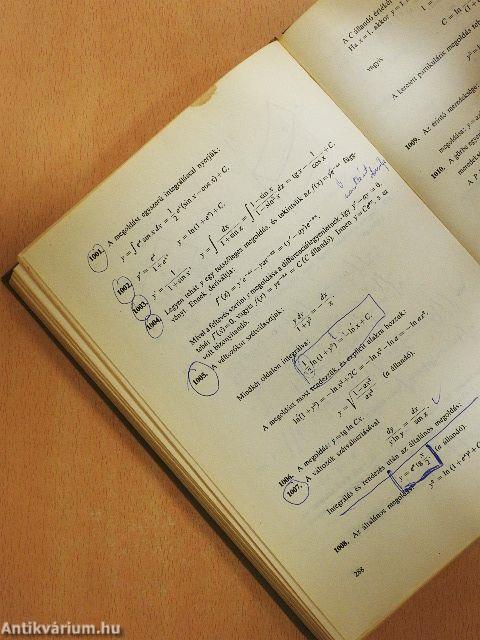 1001. A megoldást egyszerű integrálással nyerjük:
y = ∫ eˣ sin x dx = 1/2 eˣ (sin x − cos x) + C.
1002. y' = eˣ/(1+eˣ), y = ln (1 + eˣ) + C.
1003. y' = 1/(1+sin x), y = ∫ dx/(1+sin x) = ∫ (1−sin x)/(1−sin² x) dx = tg x − 1/cos x + C.
1004. Legyen tehát y egy tetszőleges megoldás, és tekintsük az függ-
vényt. Ennek deriváltja:
Mivel a feltevés szerint y megoldása a differenciálegyenletnek, így y' − ay = 0,
tehát F'(x) = 0, vagyis (C állandó). Innen s ezt
volt bizonyítandó.
1005. A változókat szétválasztjuk:
y dy/(1+y²) = − dx/x.
Mindkét oldalon integrálva:
1/2 ln (1 + y²) = − ln x + C.
A megoldást most rendezzük, és explicit alakra hozzuk:
ln (1 + y²) = − ln x² + 2C = − ln x² − ln a = − ln ax²,
y = √((1−ax²)/ax²) (a állandó).
1006. A megoldás: y = tg ln Cx.
1007. A változók szétválasztásával
dy/(y ln y) = dx/sin x.
Integrálás és rendezés után az általános megoldás:
(a állandó).
1008. Az általános megoldás
286
A C állandó értékét
Ha x = 1, akkor y = 1,
1 =
C = ln (1 +
vagyis
A keresett partikuláris megoldás teh
1009. Az érintő meredeksége:
megoldása: y = a
1010. A görbe egyen
meredeks
Antikvárium.hu